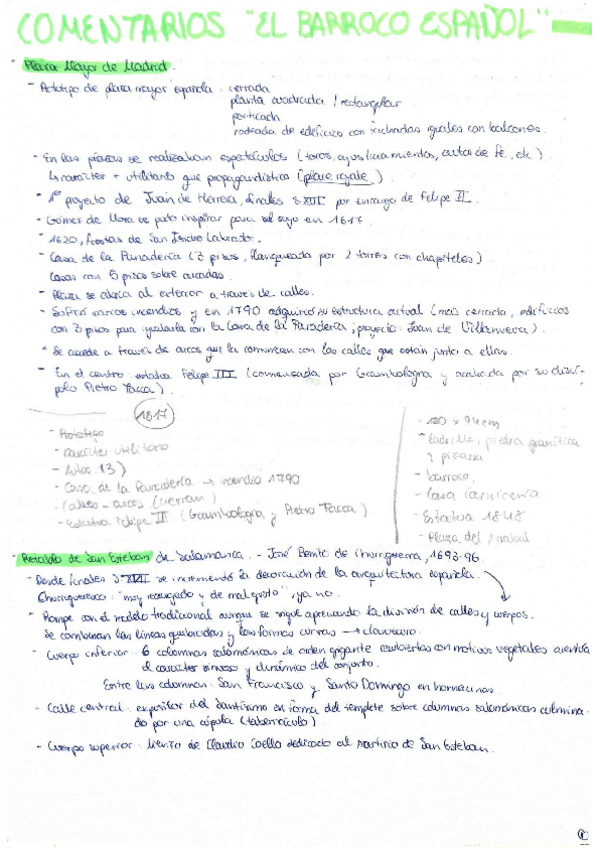 COMENTARIOS "EL BARROCO ESPAÑOL"
Plaza Mayor de Madrid.
- Prototipo de plaza mayor española: cerrada
planta cuadrada / rectangular
porticada
rodeada de edificios con fachadas iguales con balcones.
- En las plazas se realizaban espectáculos (toros, ajusticiamientos, autos de fe, etc)
↳ carácter + utilitario que propagandístico (place royale)
- 1er proyecto de Juan de Herrera, finales S.XVI por encargo de Felipe II.
- Gómez de Mora se pudo inspirar para el suyo en 1617
- 1620, fiestas de San Isidro Labrador.
- Casa de la Panadería (3 pisos, flanqueada por 2 torres con chapiteles)
Casas con 5 pisos sobre arcadas.
- Plaza se abría al exterior a través de calles.
- Sufrió varios incendios y en 1790 adquirió su estructura actual (más cerrada, edificios
con 3 pisos para igualarla con la Casa de la Panadería; proyecto: Juan de Villanueva).
- Se accede a través de arcos que la comunican con las calles que están junto a ellos.
- En el centro: estatua Felipe III (comenzada por Giambologna y acabada por su discí-
pulo Pietro Tacca).
1617
- Prototipo
- carácter utilitario
- Autos (3)
- Casa de la Panadería → incendio 1790
- Calles - arcos (cierran)
- Estatua Felipe III (Giambologna y Pietro Tacca)
- 120 x 94 cm
- Ladrillo, piedra granítica
y pizarra
- barroco
- Casa Carnicería
- Estatua 1848
- Plaza del Arrabal
Retablo de San Esteban de Salamanca. - José Benito de Churriguera, 1693-96.
- Desde finales S.XVII se incrementó la decoración de la arquitectura española.
Churrigueresco: "muy recargado y de mal gusto", ya no.
- Rompe con el modelo tradicional aunque se sigue apreciando la división de calles y cuerpos.
Se combinan las líneas quebradas y las formas curvas → claroscuro.
- Cuerpo inferior: 6 columnas salomónicas de orden gigante cubiertas con motivos vegetales acentúa
el carácter sinuoso y dinámico del conjunto.
Entre las columnas: San Francisco y Santo Domingo en hornacinas
- Calle central: expositor del Santísimo en forma del templete sobre columnas salomónicas culmina-
do por una cúpula (tabernáculo)
- Cuerpo superior: lienzo de Claudio Coello dedicado al martirio de San Esteban.